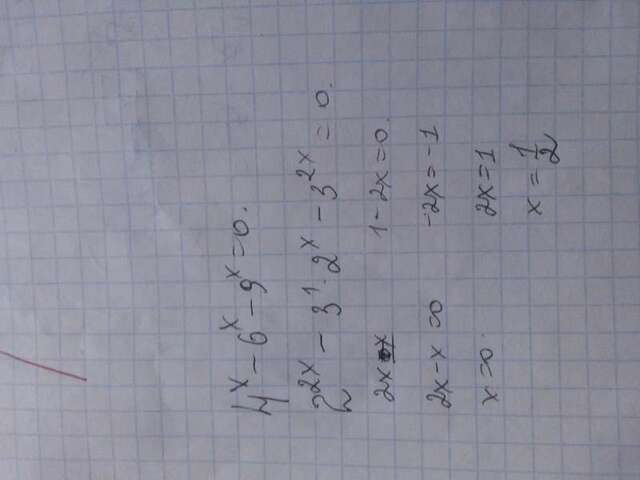 4^x - 6^x - 9^x = 0.
2^2x - 3^1 · 2^x - 3^2x = 0.
2x x 1 - 2x = 0.
2x - x = 0 -2x = -1
x = 0. 2x = 1
x = 1/2